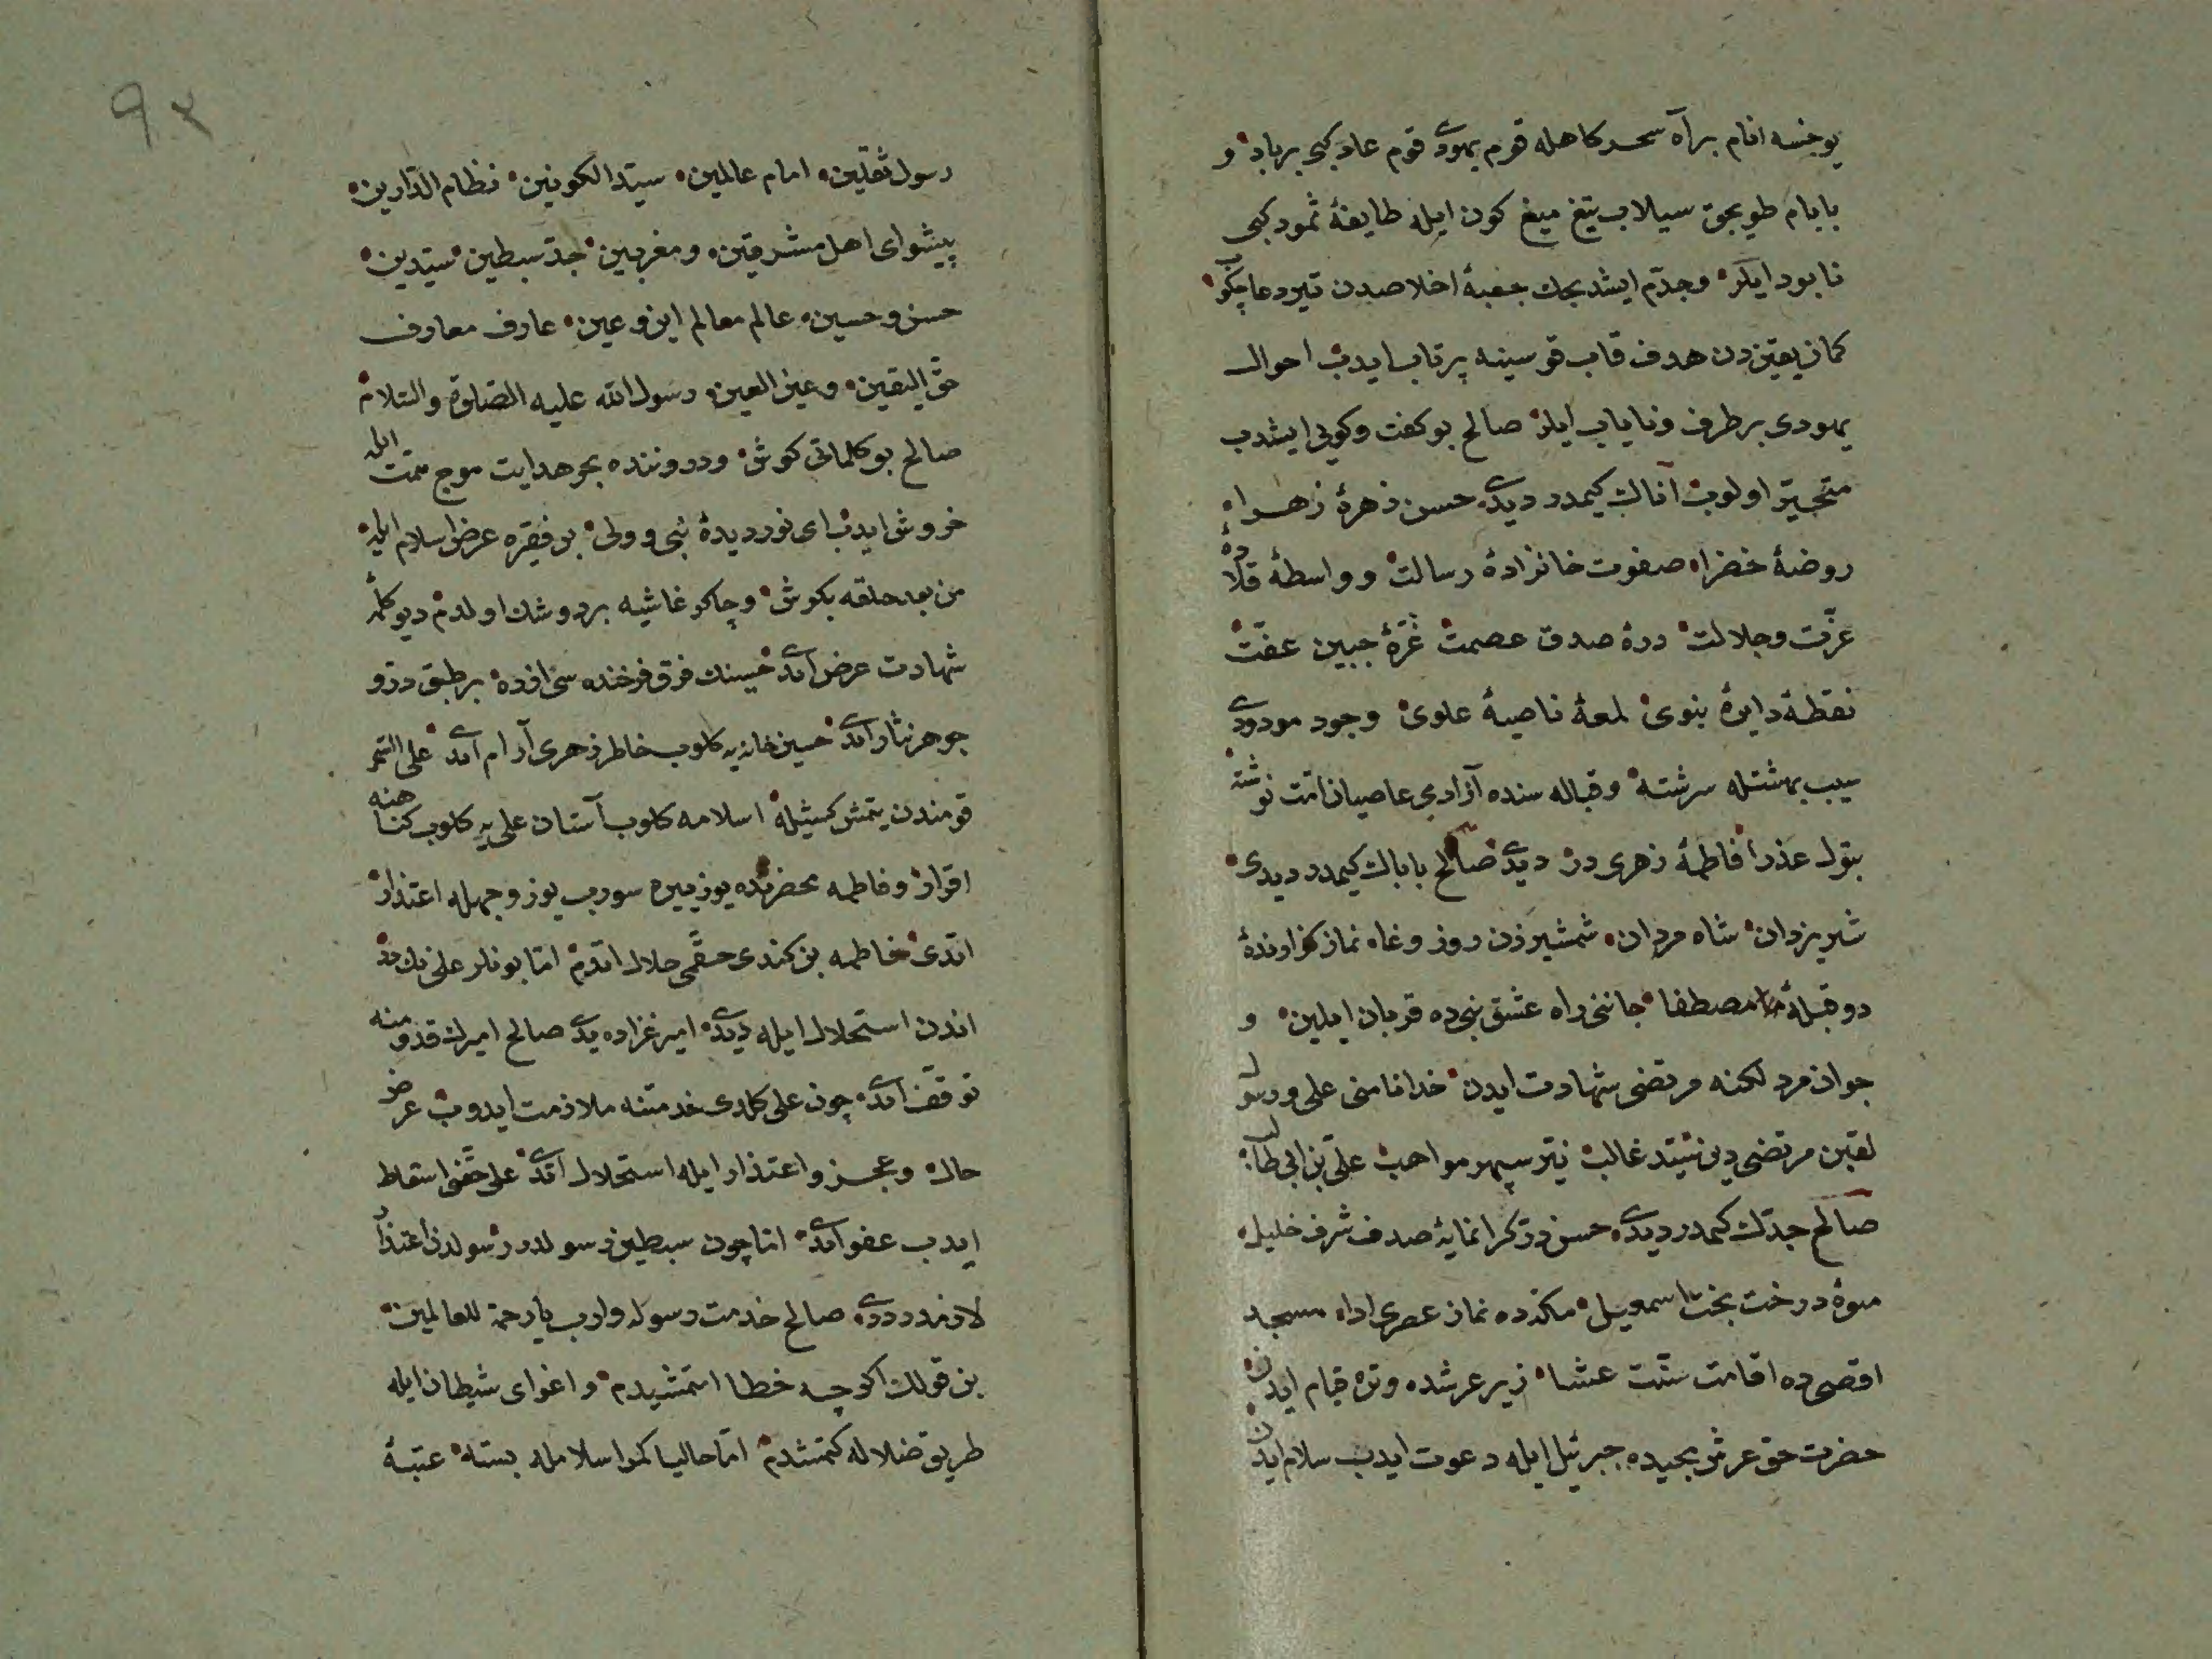 یوخسه انام برآه سحرکاهله قوم یهودی قوم عاد کبی برباد و
بابام طویجق سیلاب تیغ میغ کون ایله طایفۀ ثمود کبی
نابود ایلر وجدّم ایشدیجك جعبۀ اخلاصدن تیر دعا چکوب
کمان یقیندن هدف قاب قوسینه پرتاب ایدب احوال
یهودی برطرف ونایاب ایلر صالح بو کفت وکویی ایشدب
متحیّر اولوب آنالڭ کیمدر دیدی حسن زهرۀ زهراء
روضۀ خضراء صفوت خانزادۀ رسالت و واسطۀ قلادۀ
عزّت وجلالت درۀ صدق عصمت غرّۀ جبین عفّت
نقطۀ دایرۀ نبوی لمعۀ ناصیۀ علوی وجود مودودی
سیب بهشتله سرشته وقباله سنده آزادی عاصیان امّت نوشته
بتول عذرا فاطمۀ زهری در دیدی صالح بابالڭ کیمدر دیدی
شیر یزدان شاه مردان شمشیرزن روز وغاء نماز کزاوندۀ
دو قبلۀ مصطفا جاننی راه عشق نبی ده قربان ایلین و
جوانمرد لکنه مرتضی شهادت ایدن خدا نامنی علی و رسول
لقبن مرتضی دین سیّد غالب نیّر سپهر مواهب علیّ بن ابی طالب
صالح جدّڭ کمدر دیدی حسن درّ کرانمایۀ صدف شرف خلیل
میوۀ درخت بخت اسمعیل مکّه ده نماز عصری اداء مسجد
اقصی ده اقامت سنّت عشاء زیر عرشده وتره قیام ایدن
حضرت حق عرش مجیده جبرئیل ایله دعوت ایدب سلام ایدن
٩٢
رسول ثقلین امام عالمین سیّد الکونین نظام الدّارین
پیشوای اهل مشرقین ومغربین جدّ سبطین سیّدین
حسن وحسین عالم معالم این وعین عارف معارف
حقّ الیقین وعین العین رسول الله علیه الصّلوة والسّلام
صالح بو کلماتی کوش ودروننده بحر هدایت موج همّت ایله
خروش ایدب ای نور دیدۀ نبی و ولی بن فقیره عرض اسلام ایله
من بعد حلقه بکوش وچاکر غاشیه بردوشڭ اولدم دیو کلمۀ
شهادت عرض اتدی حسینڭ فرق فرخنده سی اوزره بر طبق درّ و
جوهر نثار اتدی حسین خانه یه کلوب خاطر زهری آرام اتدی علی السّحر
قومندن یتمش کشیله اسلامه کلوب آستان علی یه کلوب کناهنه
اقرار وفاطمه محضرنده یوز ییره سورب یوز وجهله اعتذار
اتدی فاطمه بن کندی حقّمی حلال اتدم امّا بونلر علی نڭ در
اندن استحلال ایله دیدی امیر غزاده یدی صالح امیرڭ قدومنه
توقّف اتدی چون علی کلدی خدمتنه ملازمت ایدوب عرض
حال وعجز واعتذار ایله استحلال اتدی علی حقّنی اسقاط
ایدب عفو اتدی امّا چون سبطین رسولدر رسولدن اعتذار
لازمدر دیدی صالح خدمت رسوله وارب یا رحمة للعالمین
بن قولڭ اکرچه خطا اتمشیدم و اغوای شیطان ایله
طریق ضلاله کتمشدم امّا حالیا کمر اسلامله بسته عتبۀ